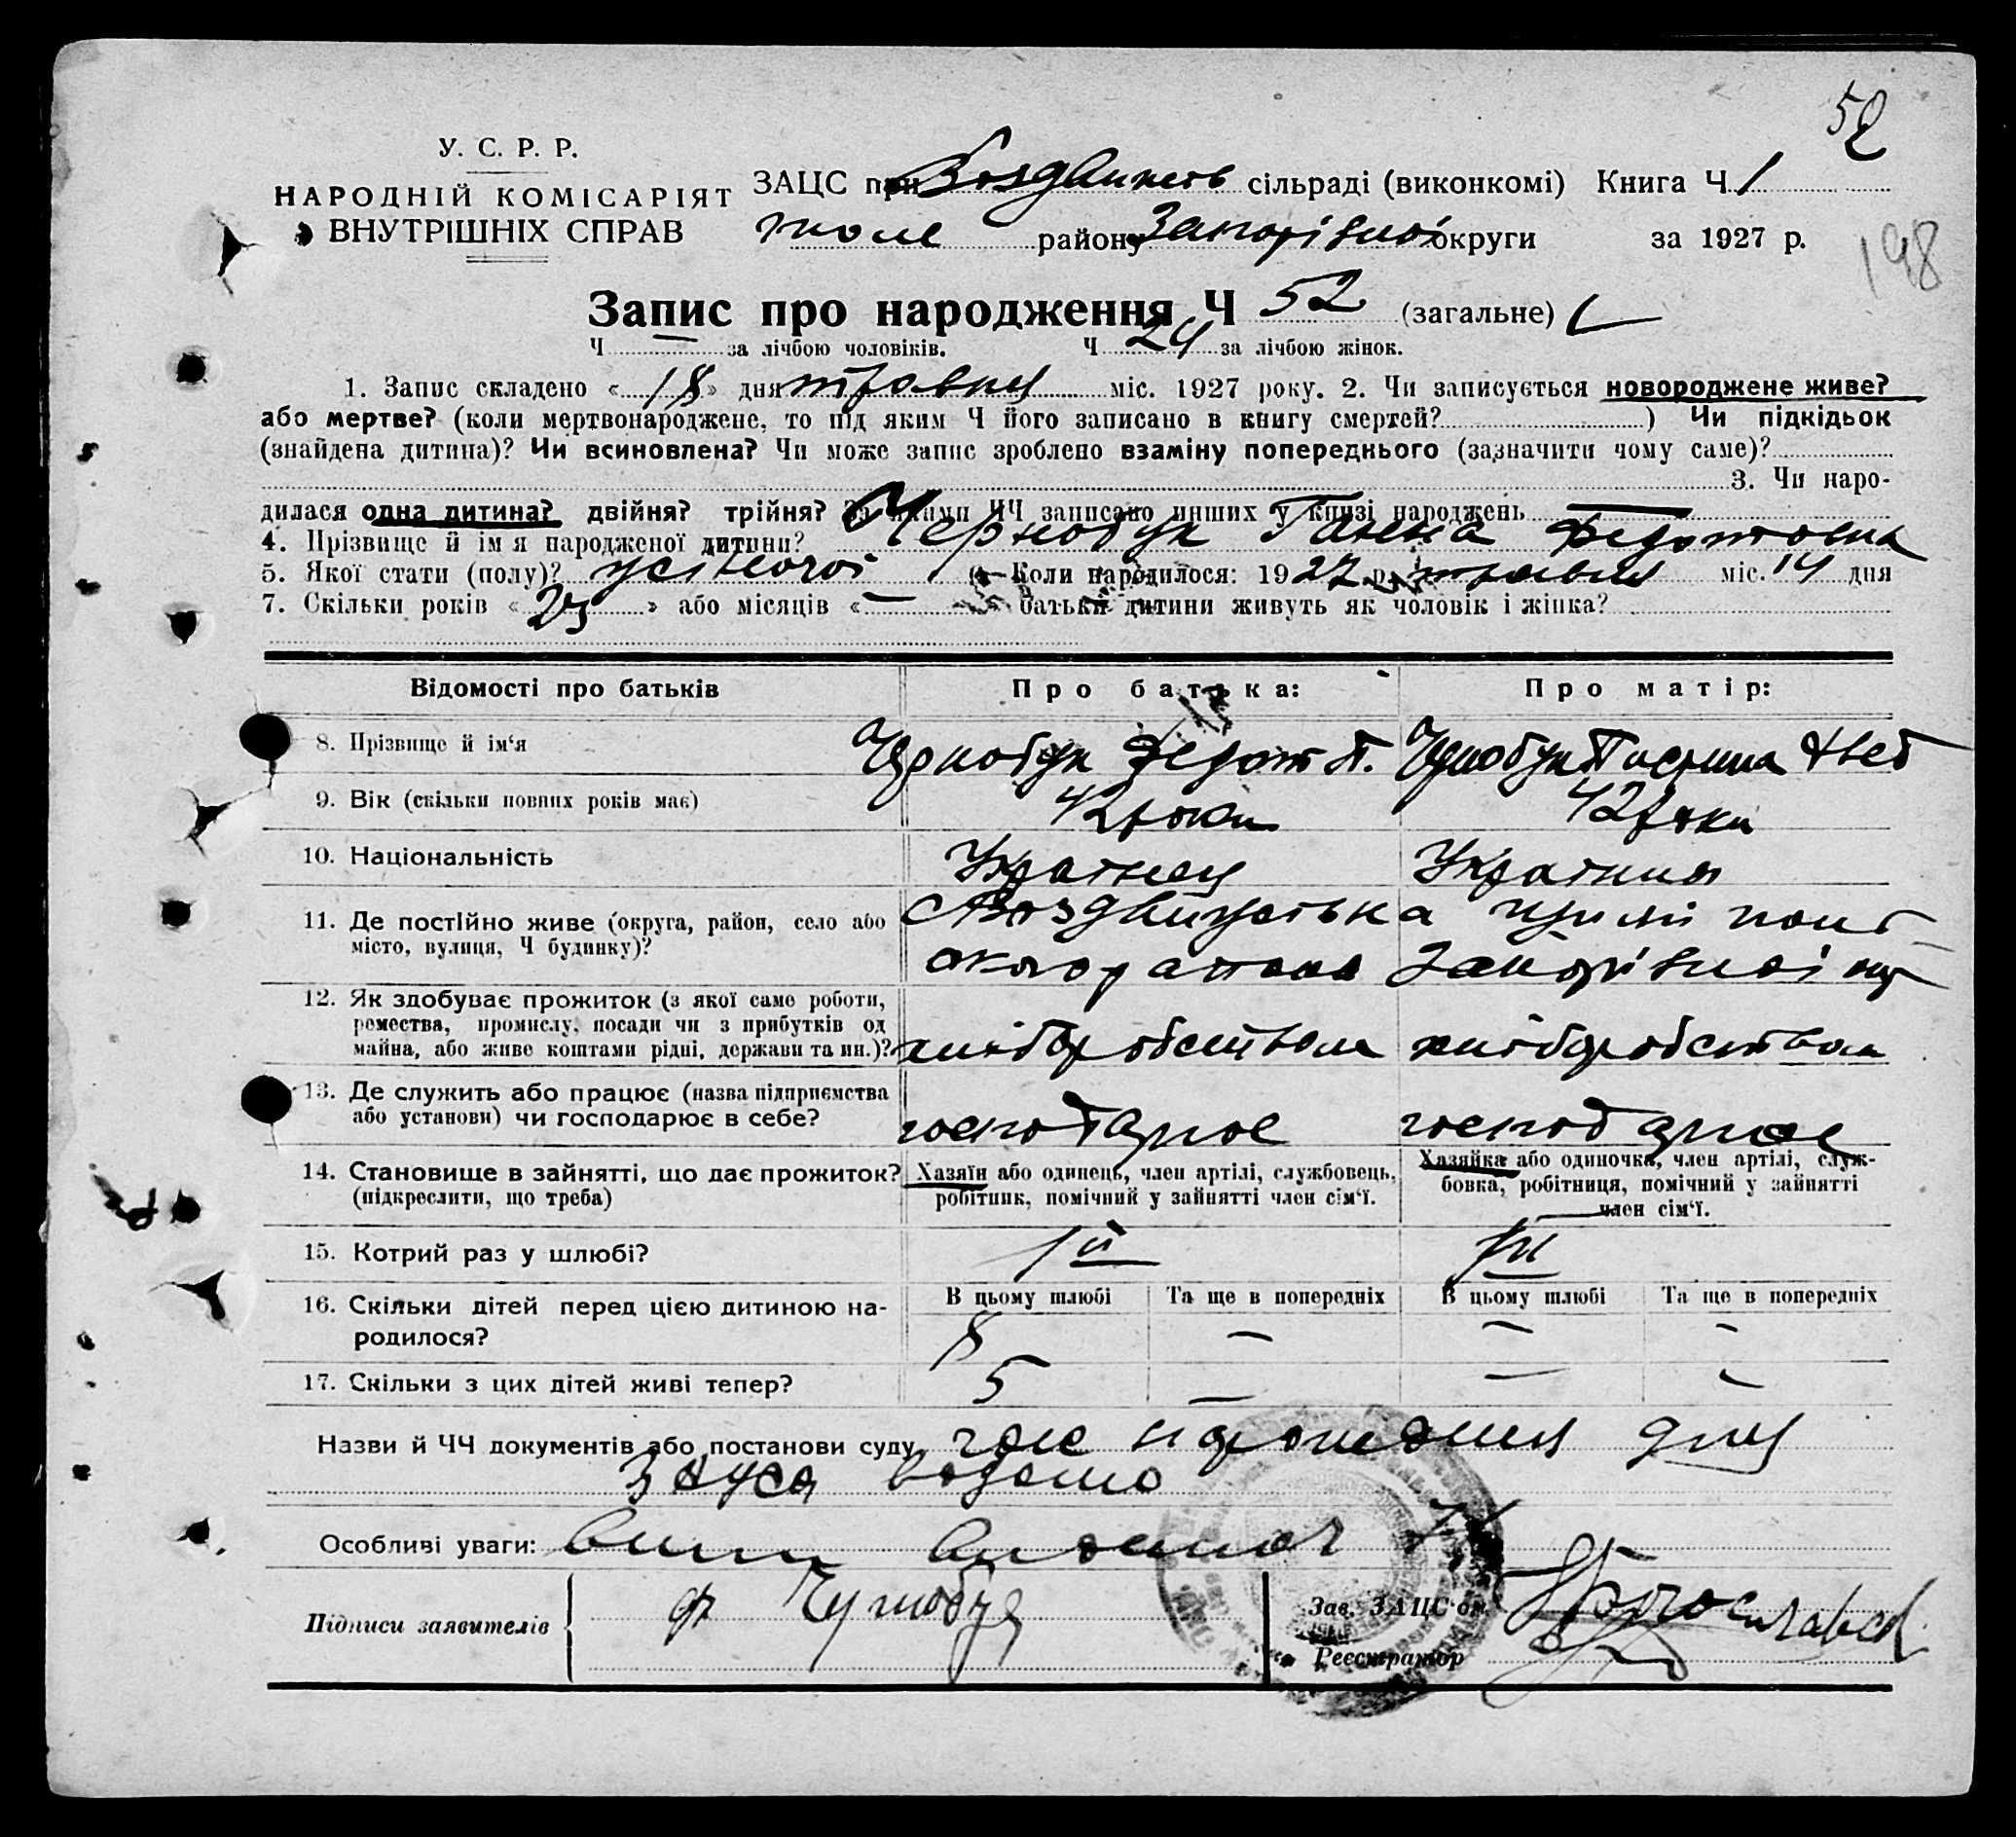 52
У. С. Р. Р.
НАРОДНІЙ КОМІСАРІЯТ
ВНУТРІШНІХ СПРАВ
ЗАЦС при Воздвижев сільраді (виконкомі) Книга Ч 1
району округи за 1927 р.
198
Запис про народження Ч 52 (загальне)
Ч — за лічбою чоловіків. Ч 24 за лічбою жінок.
1. Запис складено « 18 » дня травня міс. 1927 року. 2. Чи записується новороджене живе?
або мертве? (коли мертвонароджене, то під яким Ч його записано в книгу смертей? ) Чи підкідьок
(знайдена дитина)? Чи всиновлена? Чи може запис зроблено взаміну попереднього (зазначити чому саме)?
3. Чи наро-
дилася одна дитина? двійня? трійня? За якими ЧЧ записано инших у книзі народжень —
4. Прізвище й ім'я народженої дитини? Чернобук Ганна Федотовна
5. Якої стати (полу)? жіночої 6. Коли народилося: 1927 р. травня міс. 14 дня
7. Скільки років « » або місяців « — » батьки дитини живуть як чоловік і жінка?
Відомості про батьків Про батька: Про матір:
8. Прізвище й ім‘я Чернобук Федот П. Чернобук
9. Вік (скільки повних років має) 42 роки 42 роки
10. Національність Українец Українка
11. Де постійно живе (округа, район, село або
місто, вулиця, Ч будинку)?
12. Як здобуває прожиток (з якої саме роботи,
ремества, промислу, посади чи з прибутків од
майна, або живе коштами рідні, держави та ин.)? хліборобством хліборобством
13. Де служить або працює (назва підприємства
або установи) чи господарює в себе? господарює господарює
14. Становище в зайнятті, що дає прожиток?
(підкреслити, що треба)
Хазяїн або одинець, член артілі, службовець,
робітник, помічний у зайнятті член сім‘ї.
Хазяйка або одиночка, член артілі, служ-
бовка, робітниця, помічний у зайнятті
член сім‘ї.
15. Котрий раз у шлюбі? 1й 1й
В цьому шлюбі Та ще в попередніх В цьому шлюбі Та ще в попередніх
16. Скільки дітей перед цією дитиною на-
родилося? 8 — — —
17. Скільки з цих дітей живі тепер? 5 — — —
Назви й ЧЧ документів або постанови суду
Особливі уваги:
Підписи заявителів Ф Чернобук
Зав. ЗАЦС‘ом
Реєстратор